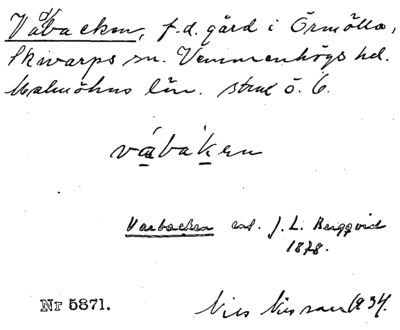 Våbacken, f.d. gård i Örmölla,
Skivarps sn. Vemmenhögs hd.
Malmöhus län. strax ö. 6.
våbaken
Vasbacken enl. J. L. Bergqvist
1878.
Nr 5871. Nils Nilsson 1934.